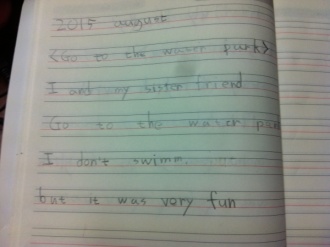 2015 august
<Go to the water park>
I and my sister friend
Go to the water park
I don't swimm.
but it was very fun